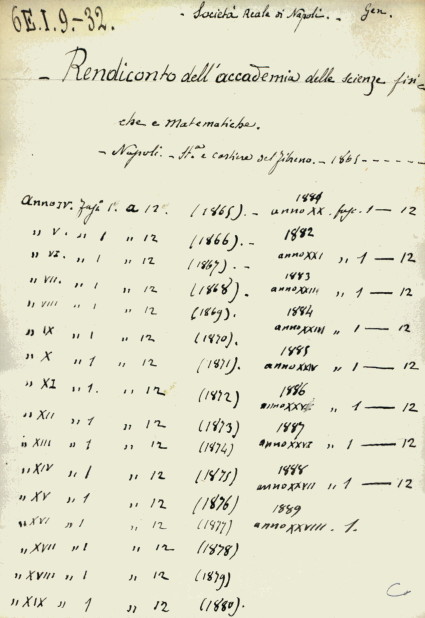 6E.I.9.-32.
- Società Reale di Napoli. - Gen.
- Rendiconto dell'accademia delle scienze fisi-
che e Matematiche.
- Napoli. - St.ª e cartiere del Fibreno. - 1865 -------
Anno IV. Fasc. 1. a 12. (1865). -
" V. " 1 " 12 (1866). -
" VI. " 1 " 12 (1867). -
" VII. " 1 " 12 (1868).
" VIII " 1 " 12 (1869).
" IX " 1 " 12 (1870).
" X " 1 " 12 (1871).
" XI " 1. " 12 (1872)
" XII " 1 " 12 (1873)
" XIII " 1 " 12 (1874)
" XIV " 1 " 12 (1875)
" XV " 1 " 12 (1876)
" XVI " 1 " 12 (1877)
" XVII " 1 " 12 (1878)
" XVIII " 1 " 12 (1879)
" XIX " 1 " 12 (1880).
anno XX. fasc. 1 — 12
1882
anno XXI " 1 — 12
1883
anno XXIII " 1 — 12
1884
anno XXIII " 1 — 12
1885
anno XXIV " 1 — 12
1886
anno XXV " 1 — 12
1887
anno XXVI " 1 — 12
1888
anno XXVII " 1 — 12
1889
anno XXVIII. 1.